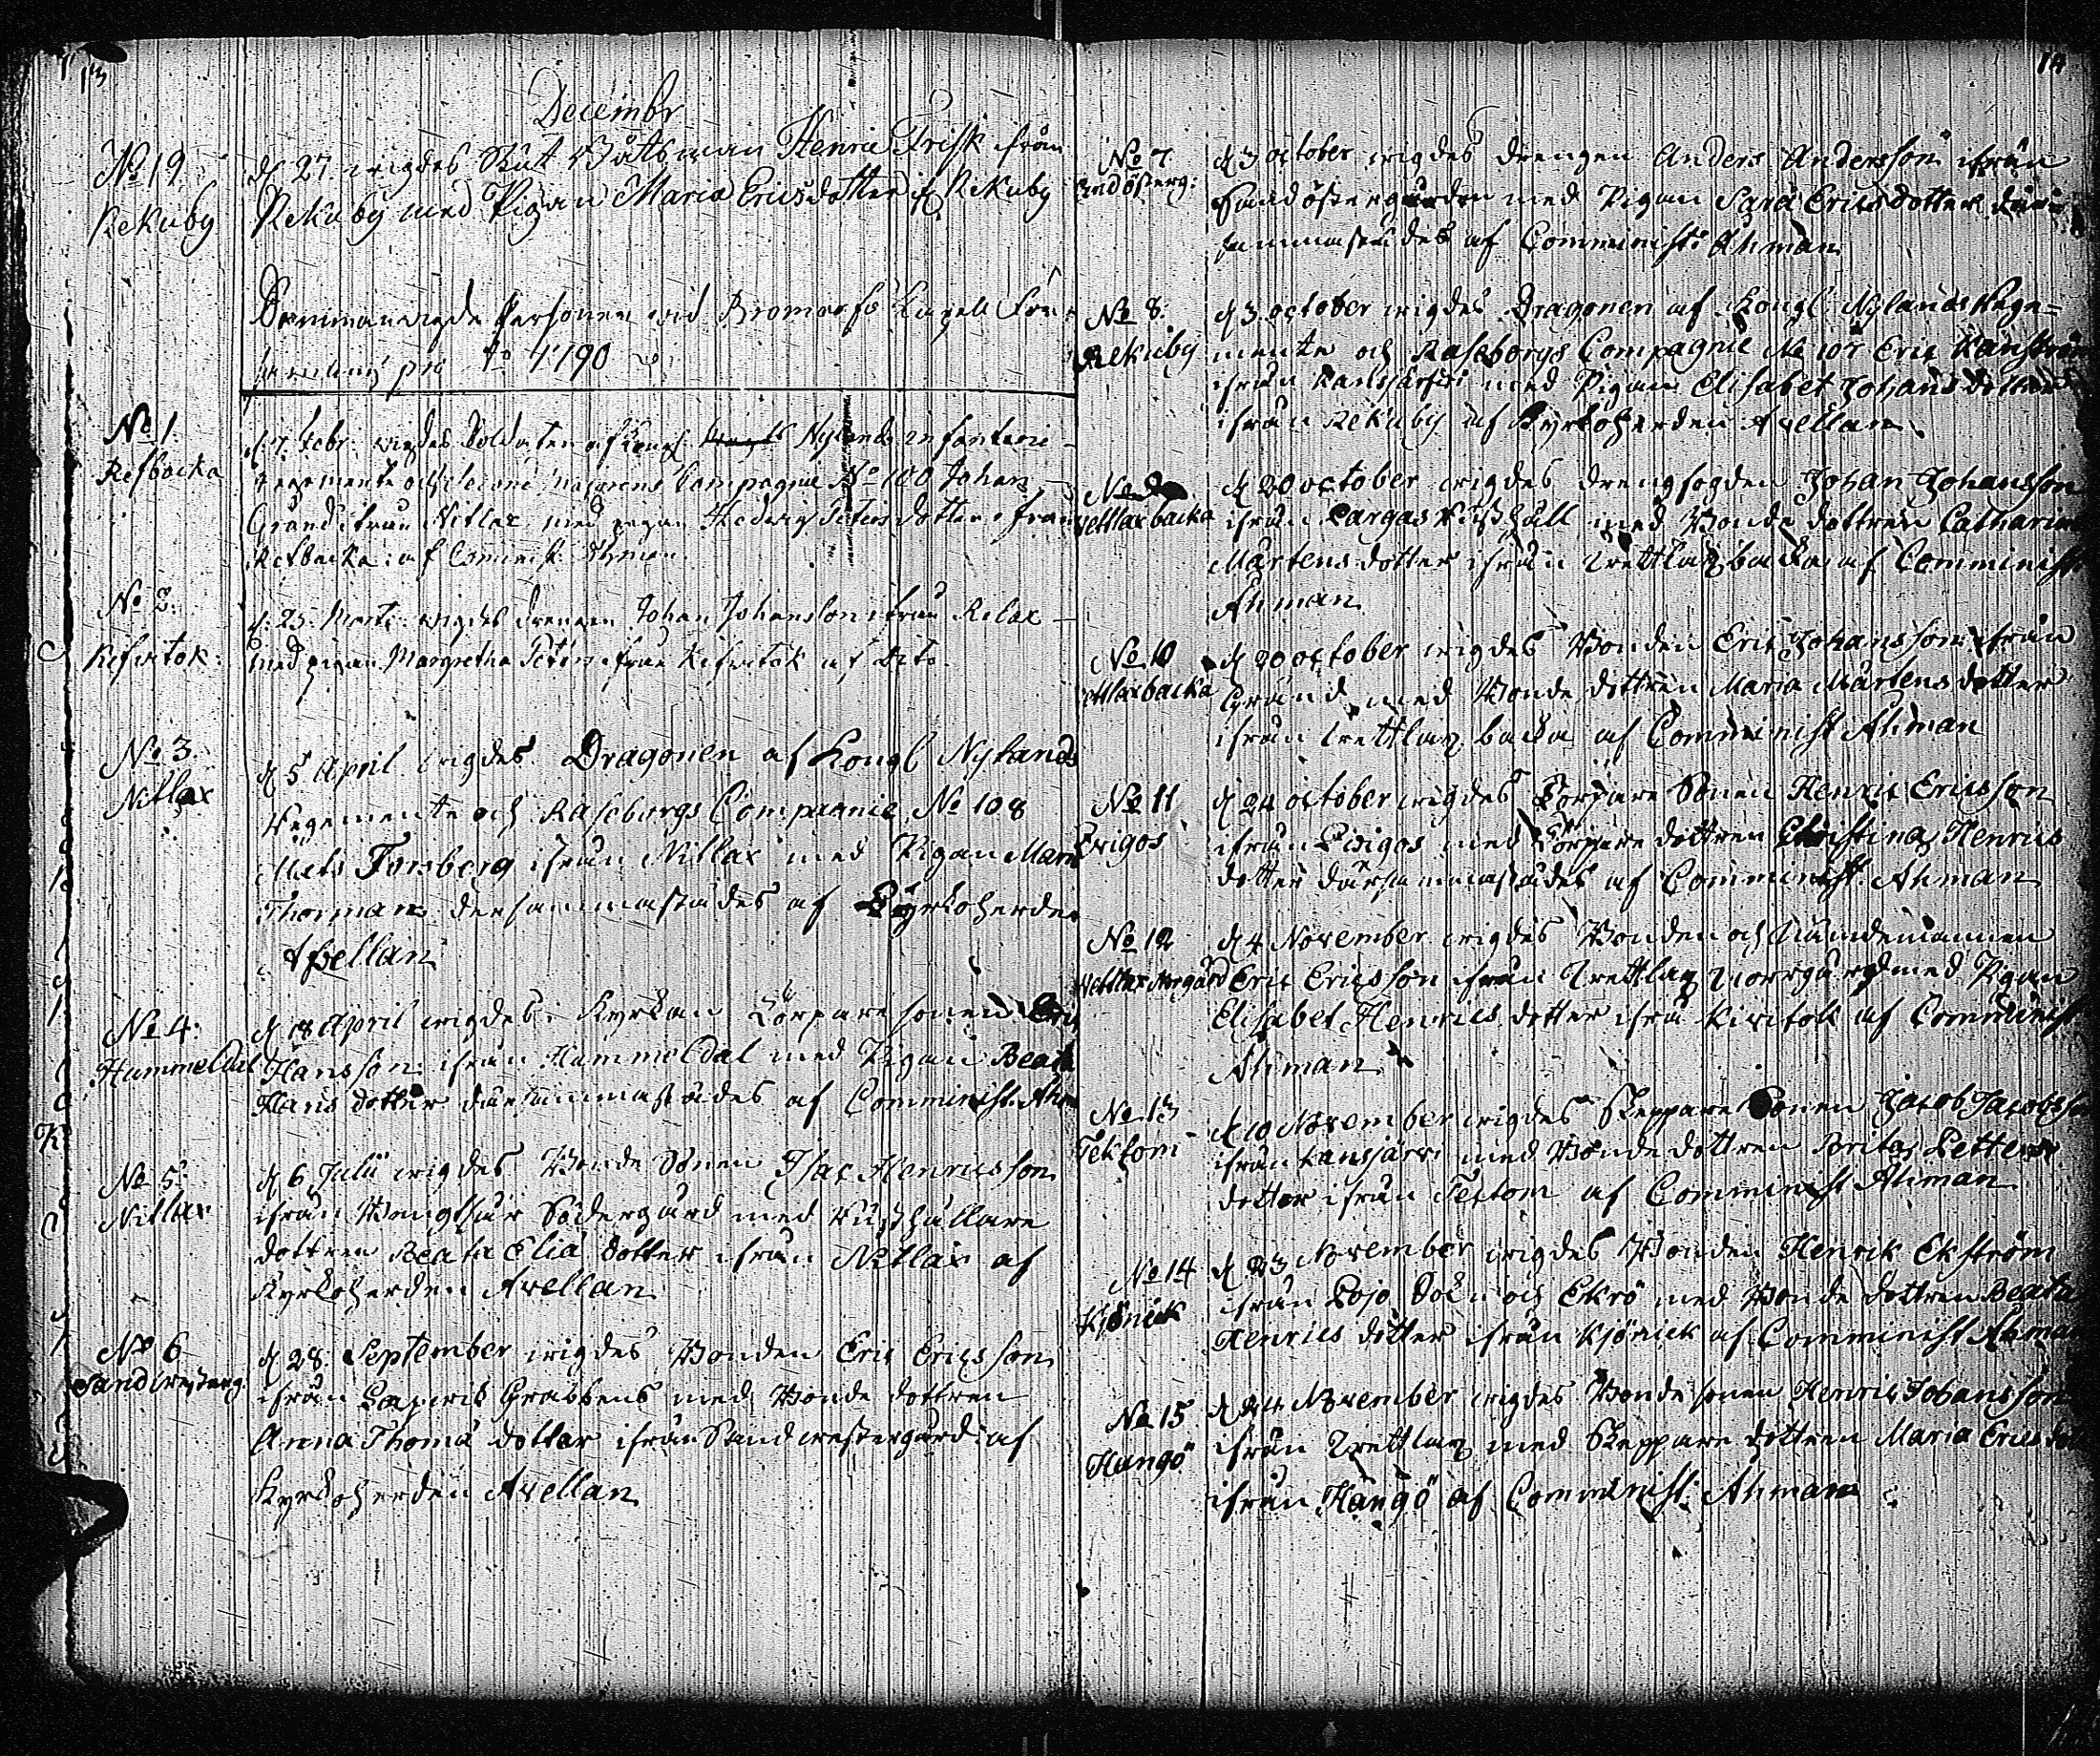 13
Decembr
No 19
Rekuby
d 27 wigdes Båtsman Henric Frisk ifrån
Rekuby med Pigan Maria Ericsdotter if Rekuby
Sammanvigde Personer vid Bromarfs Capell För-
samling pro Ao 1790
No 1
Refbacka
d. 7. Febr. wigdes Soldaten af Kongl. Nylands infanterie
regemente och Second Majorens Compagnie No 100 Johan
Grund ifrån Nitlax med pigan Hedwig Peters dotter ifrån
Refbacka. af Cominist. Åhman.
No 2.
Kifvitok:
d. 25. Marti: wigdes drengen Johan Johansson ifrån Rilax
med pigan Margretha Peters ifrån Kifvitok af Dito.
No 3.
Nitlax
d 5 April wigdes Dragonen af Kongl Nylands
Regemente och Raseborgs Compagnie No 108
Mats Forsberg ifrån Nitlax med Pigan Maria
Thorman dersammastädes af Kyrkoherden
Avellan
No 4:
Hammeldal
d 18 April wigdes i Kyrkan Torpare sonen Eric
Hansson ifrån Hammeldal med Pigan Beata
Hans dotter därsammastädes af Comminist. Åhman
No 5:
Nitlax
d 6 Julii wigdes Bonde Sonen Isac Henricsson
ifrån Södergård med Rusthållare
dottren Beata Eliä dotter ifrån Nitlax af
Kyrkoherden Avellan
No 6
Sandwesterg:
d 28: September wigdes Bonden Eric Ericsson
ifrån Grabbens med Bonde dottren
Anna Thomä dotter ifrån Sandwestergård af
Kyrkoherden Avellan
14
No 7
Sandösterg:
d 3 october wigdes drengen Anders Andersson ifrån
Sandöstergården med Pigan Sara Ericsdotter där
sammastädes af Comminist: Åhman
No 8:
Rekuby
d 3 october wigdes Dragonen af Kongl Nylands Rege-
mente och Raseborgs Compagnie No 107 Eric
ifrån Kansjärvi med Pigan Elisabet Johans dotter
ifrån Rekuby af Kyrkoherden Avellan
No 9
Vettlaxbacka
d 20 october wigdes drengfogden Johan Johansson
ifrån Pargas med Bonde dottren Catharina
Mårtens dotter ifrån Wettlaxbacka af Comminist:
Åhman
No 10
Vettlaxbacka
d 20 october wigdes Bonden Eric Johansson ifrån
Grund med Bonde dottren Maria Mårtens dotter
ifrån Wettlaxbacka af Comminist Åhman
No 11
d 24 october wigdes Torpare Sonen Henric Ericsson
ifrån med Torpare dottren Christina Henrics
dotter därsammastädes af Comminist Åhman
No 12
Wettlax Norgård
d 4 November wigdes Bonden och Nämndemannen
Eric Ericsson ifrån Wettlax Norrgård med Pigan
Elisabet Henrics dotter ifrå Kivitok af Comminist
Åhman
No 13
Tektom
d 10 November wigdes Skeppare Sonen Jacob Jacobsson
ifrån Kansjärvi med Bonde dottren Brita Petters
dotter ifrån Tektom af Comminist Åhman
No 14
Kjönick
d 23 November wigdes Bonden Henrik Ekström
ifrån Pojo Sokn och Ekrö med Bonde dottren Beata
Henrics dotter ifrån Kjönick af Comminist Åhman
No 15
Hangö
d 24 November wigdes Bonde sonen Henric Johansson
ifrån Wettlax med Skeppare dottren Maria Ericsdotter
ifrån Hangö af Comminist. Åhman